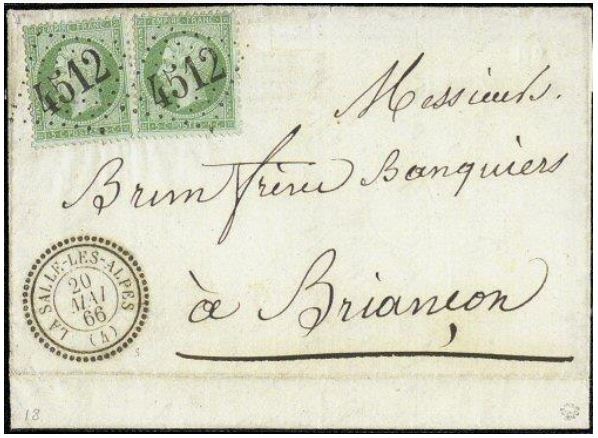 EMPIRE FRANC.
EMPIRE FRANC.
4512
4512
Messieurs.
Brun frères Banquiers
à Briançon
LA SALLE-LES-ALPES
20
MAI
66
(4)
18